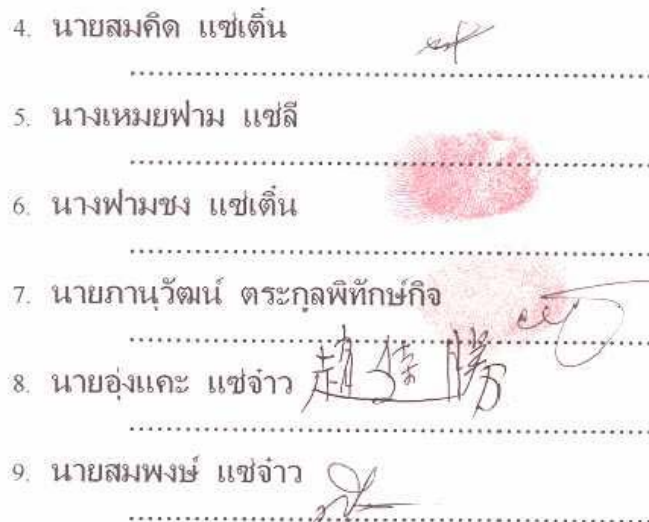 4. นายสมคิด แซ่เติ๋น
5. นางเหมยฟาม แซ่ลี
6. นางฟามชง แซ่เติ๋น
7. นายภานุวัฒน์ ตระกูลพิทักษ์กิจ
8. นายอุ่งแคะ แซ่จ๋าว 趙
9. นายสมพงษ์ แซ่จ๋าว